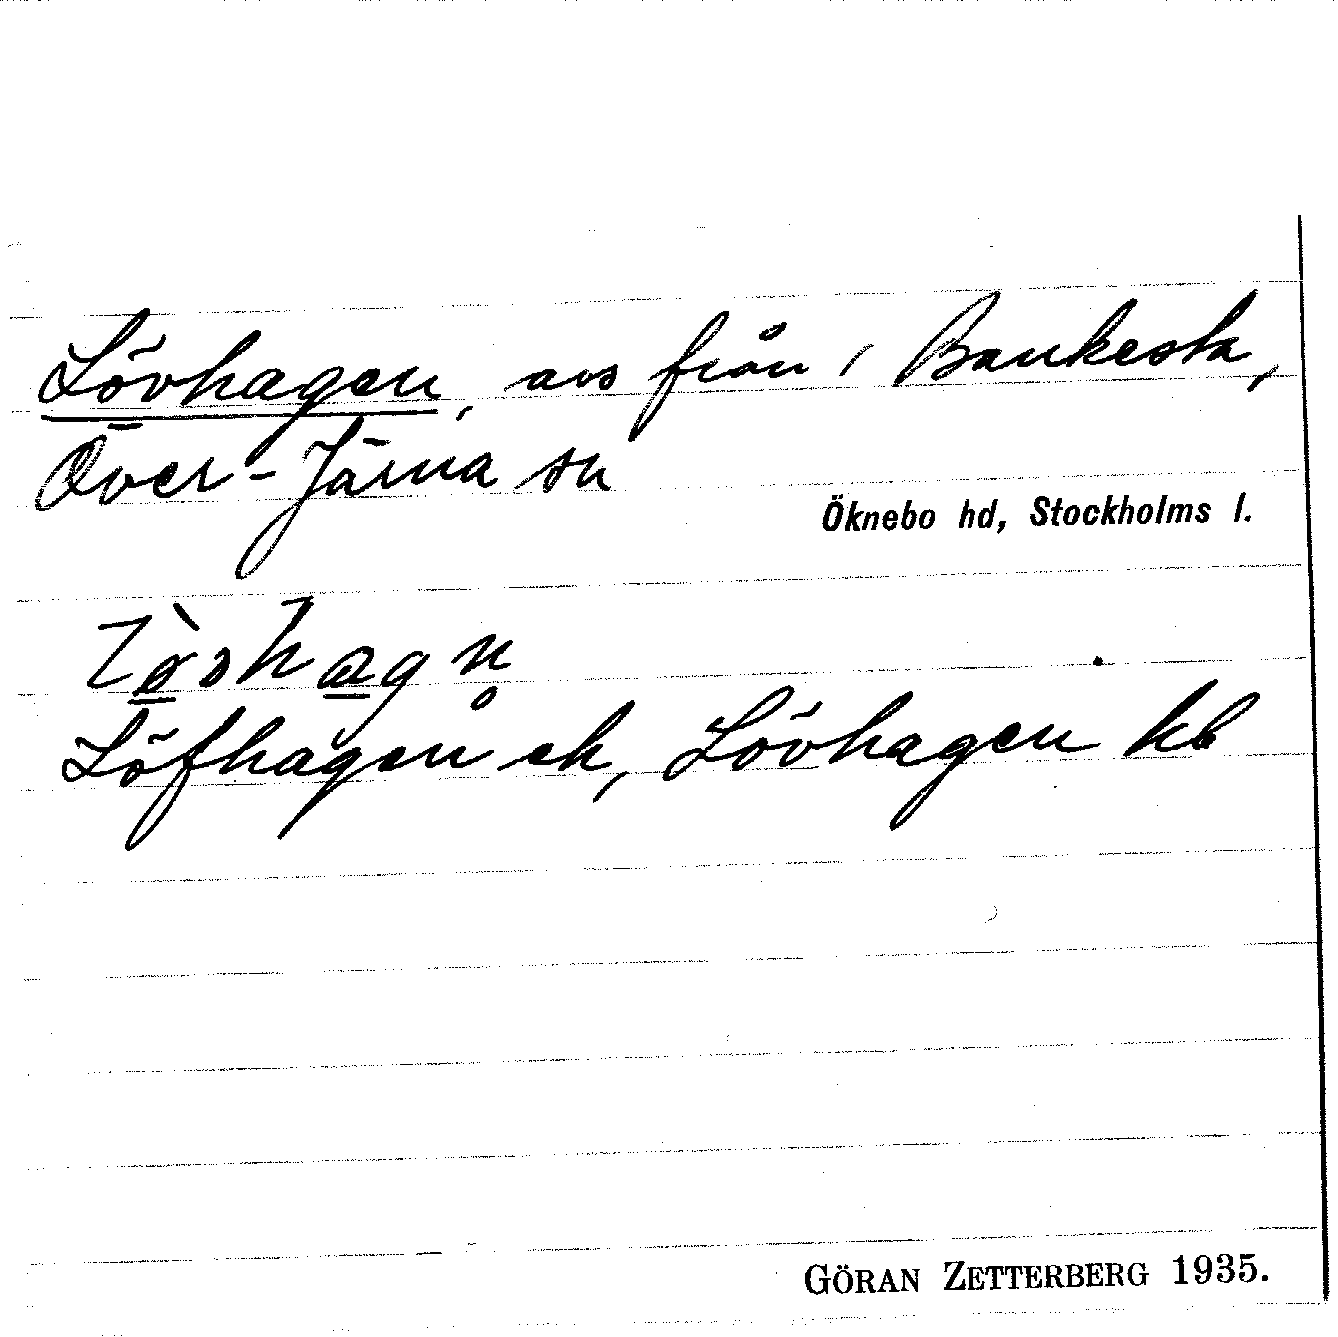 Lövhagen, avs från / Bankesta,
Över-Järna sn
Öknebo hd, Stockholms l.
Löfhagen ek, Lövhagen kb
GÖRAN ZETTERBERG 1935.